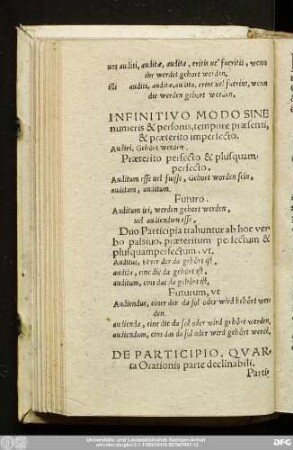 uos auditi, auditæ, audita, eritis uel fueritis, wenn
ihr werdet gehort werden,
illi auditi, auditæ, audita, erint uel fuerint, wenn
die werden gehort werden.
INFINITIVO MODO SINE
numeris & personis, tempore præsenti,
& præterito imperfecto.
Audiri, Gehört werden.
Præterito perfecto & plusquam-
perfecto.
Auditum esse uel fuisse, Gehort worden sein,
auditam, auditum.
Futuro.
Auditum iri, werden gehort werden,
uel audiendum esse.
Duo Participia trahuntur ab hoc ver
bo passiuo, præteritum perfectum &
plusquamperfectum, vt.
Auditus, Einer der da gehört ist,
audita, eine die da gehört ist,
auditum, eins das da gehört ist,
Futurum, vt
Audiendus, einer der da sol oder wird gehört wer-
den.
audienda, eine die da sol oder wird gehört werden,
audiendum, eins das da sol oder werd gehört werd,
DE PARTICIPIO, QVAR-
ta Orationis parte declinabili.
Parti-
Universitäts- und Landesbibliothek Sachsen-Anhalt
DFG